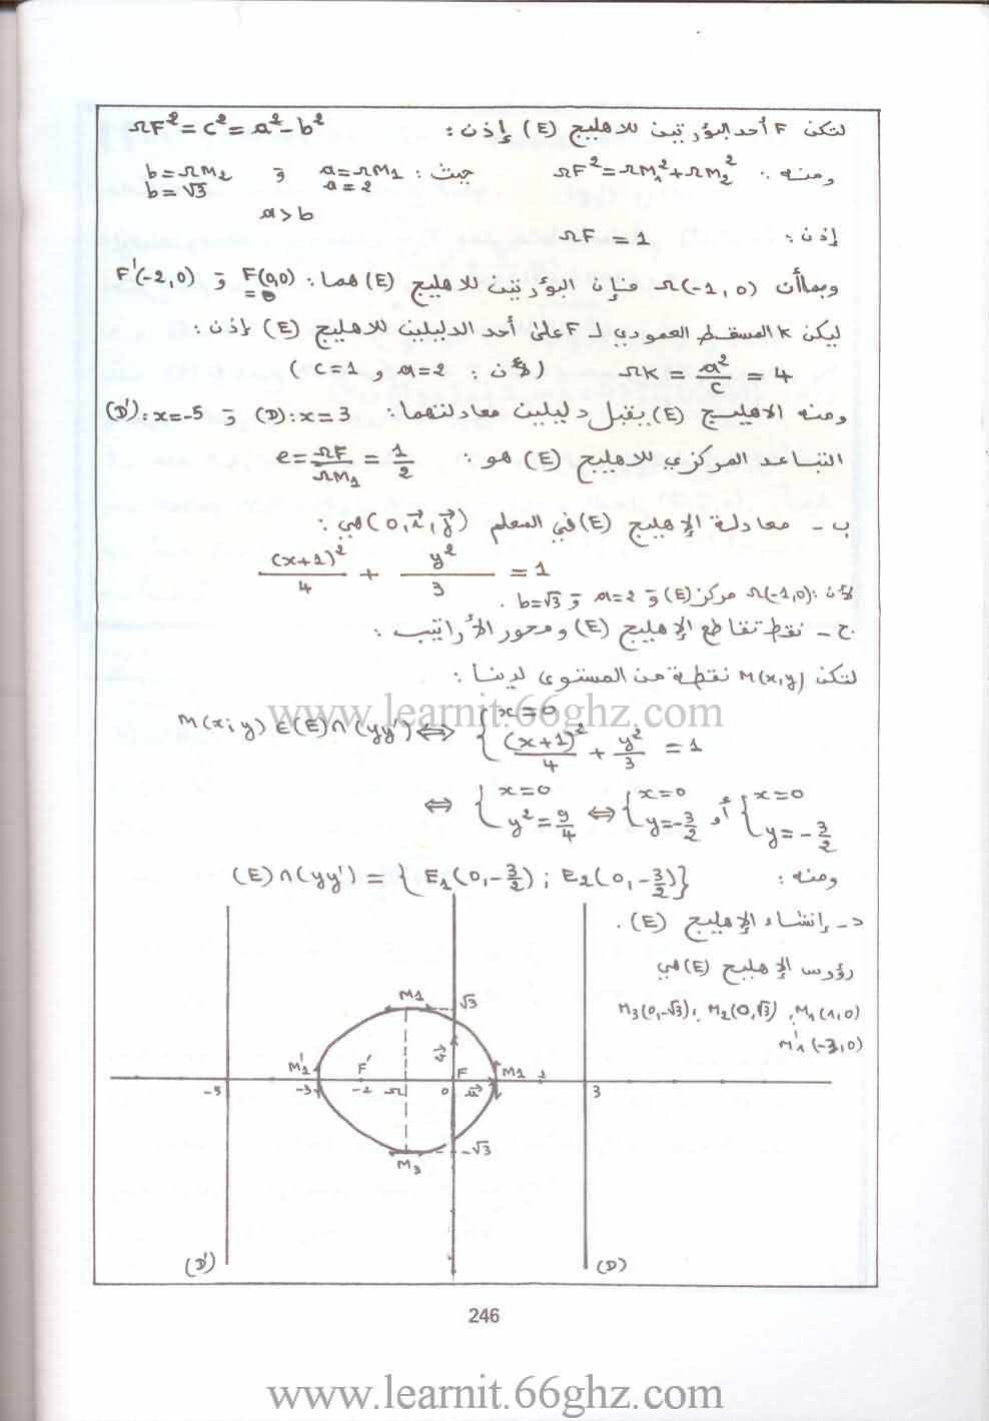 لتكن F أحد البؤرتين للاهليج (E) إذن : ΩF² = c² = a² - b²
ومنه : ΩF² = ΩM₁² + ΩM₂² حيث : a = ΩM₁ و b = ΩM₂
a = 2 b = √3
a > b
إذن : ΩF = 1
وبماأن Ω(-1,0) فإن البؤرتين للاهليج (E) هما : F(0,0) و F'(-2,0)
= 0
ليكن K المسقط العمودي لـ F على أحد الدليلين للاهليج (E) إذن :
ΩK = a²/c = 4 (لأن : a=2 و c=1)
ومنه الاهليج (E) يقبل دليلين معادلتهما : (D): x = 3 و (D'): x = -5
التباعد المركزي للاهليج (E) هو : e = ΩF/ΩM₁ = 1/2
ب - معادلة الإهليج (E) في المعلم (O, i⃗, j⃗) هي :
(x+1)²/4 + y²/3 = 1
لأن : Ω(-1,0) مركز (E) و a=2 و b=√3 .
ج - نقط تقاطع الإهليج (E) ومحور الأراتيب :
لتكن M(x,y) نقطة من المستوى لدينا :
www.learnit.66ghz.com
M(x;y) ∈ (E)∩(yy') ⇔ { x=0
(x+1)²/4 + y²/3 = 1
⇔ { x=0 ⇔ { x=0 أو { x=0
y² = 9/4 y=-3/2 y=-3/2
ومنه : (E)∩(yy') = {E₁(0,-3/2) ; E₂(0,-3/2)}
د - إنشاء الإهليج (E) .
رؤوس الإهليج (E) هي
M₁(1,0) , M₂(0,√3) , M₃(0,-√3)
M'₁(-3,0)
M₁ √3
M'₁ F' F M₁
-5 -3 -2 Ω 0 3
-√3
M₃
(D') (D)
246
www.learnit.66ghz.com